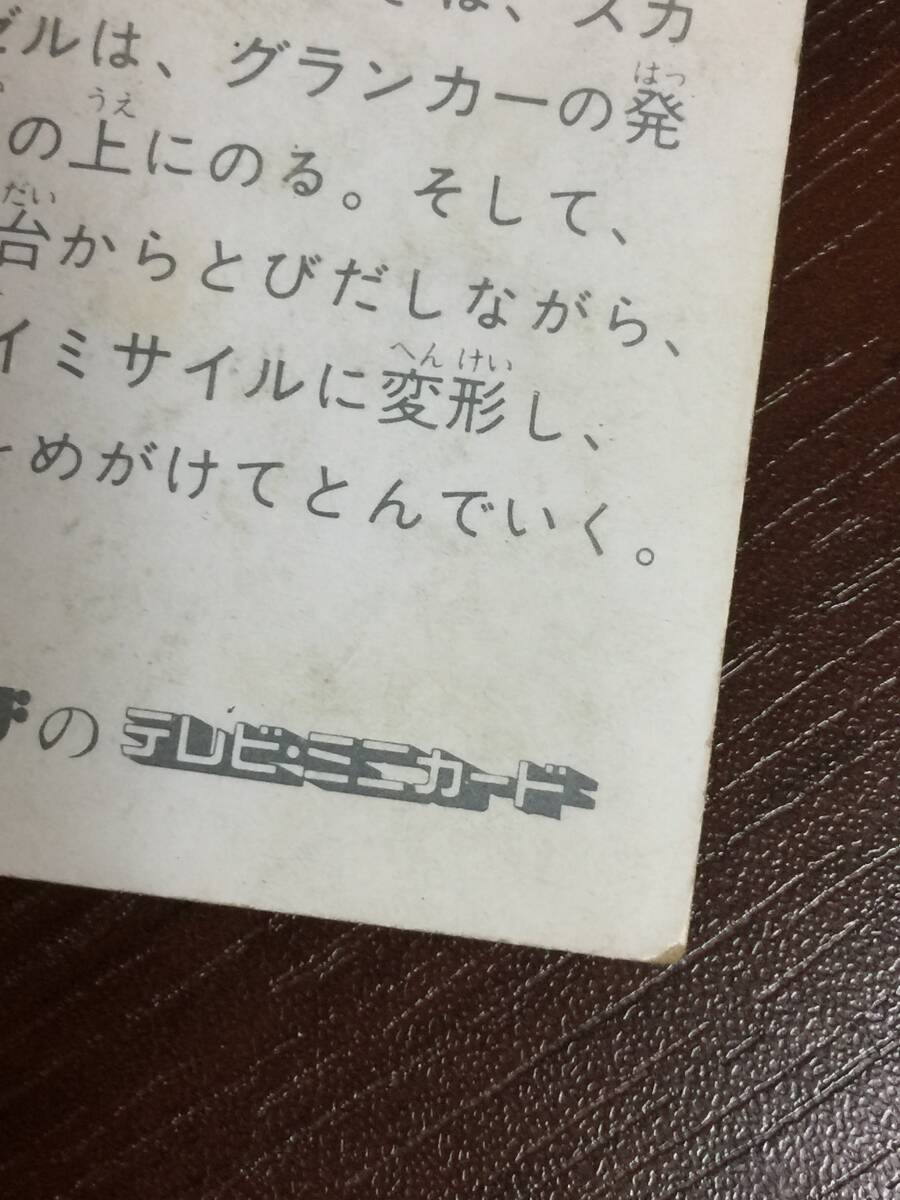 は、スカ
ゼルは、グランカーの発
の上にのる。そして、
台からとびだしながら、
イミサイルに変形し、
めがけてとんでいく。
の テレビ・ミニカード